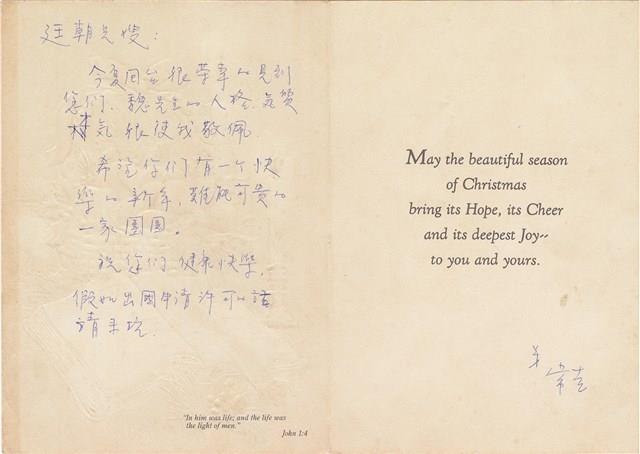 廷朝兄嫂：
今夏回台很榮幸的見到
您们、魏先生的人格、氣質
才氣很使我敬佩
希望你们有一个快
樂的新年，難能可贵的
一家團圓。
祝您们健康快樂，
假如出國申请许可的話
请来玩
"In him was life; and the life was
the light of men."
John 1:4
May the beautiful season
of Christmas
bring its Hope, its Cheer
and its deepest Joy--
to you and yours.
弟